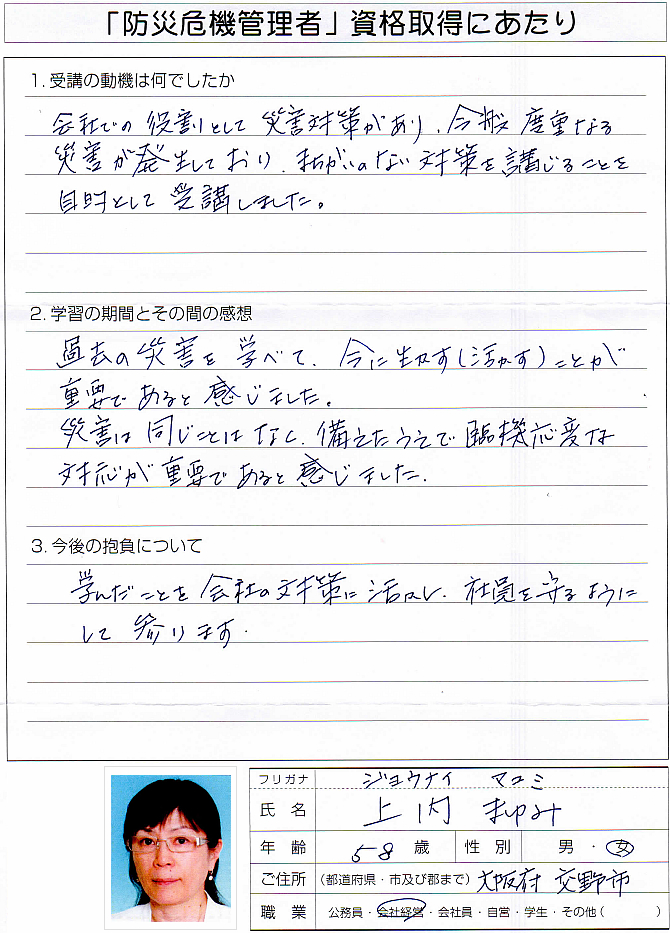 「防災危機管理者」資格取得にあたり
1. 受講の動機は何でしたか
会社での役割として災害対策があり、今般度重なる
災害が発生しており、まちがいのない対策を講じることを
目的として受講しました。
2. 学習の期間とその間の感想
過去の災害を学べて、今に生かす(活かす)ことが
重要であると感じました。
災害は同じことはなく、備えたうえで臨機応変な
対応が重要であると感じました。
3. 今後の抱負について
学んだことを会社の対策に活かし、社員を守るように
して参ります。
フリガナ ジョウナイ マユミ
氏名 上内 まゆみ
年齢 58歳 性別 男・女
ご住所 (都道府県・市及び郡まで) 大阪府 交野市
職業 公務員・会社経営・会社員・自営・学生・その他( )